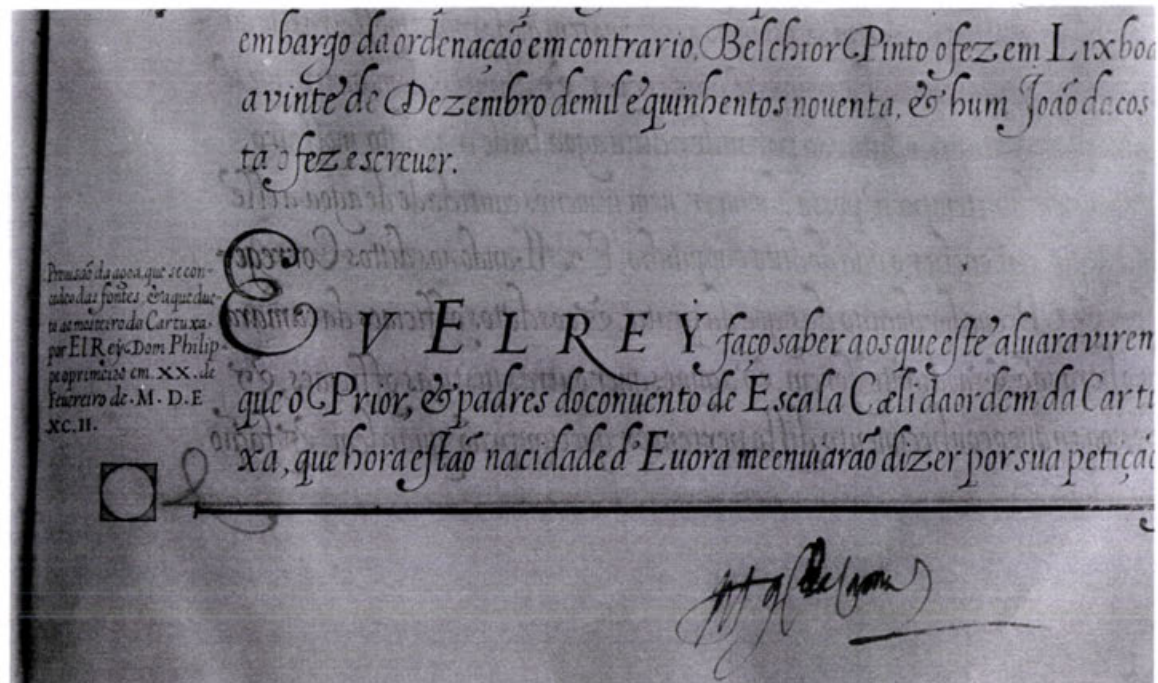 embargo da ordenação em contrario. Belchior Pinto o fez em Lixboa
a vinte de Dezembro de mil e quinhentos noventa, & hum João de cos
ta o fez escreuer.
Prouisão da agoa, que se con-
cedeo das fontes, & aqueduc-
to ao mosteiro da Cartuxa.
por El Rey Dom Philip-
pe o primeiro em. XX. de
Feuereiro de. M. D. E
XC. II.
EV ELREY faço saber aos que este aluara virem
que o Prior, & padres do conuento de Escala Cæli da ordem da Cartu
xa, que hora estão na cidade d'Euora me enuiarão dizer por sua petição